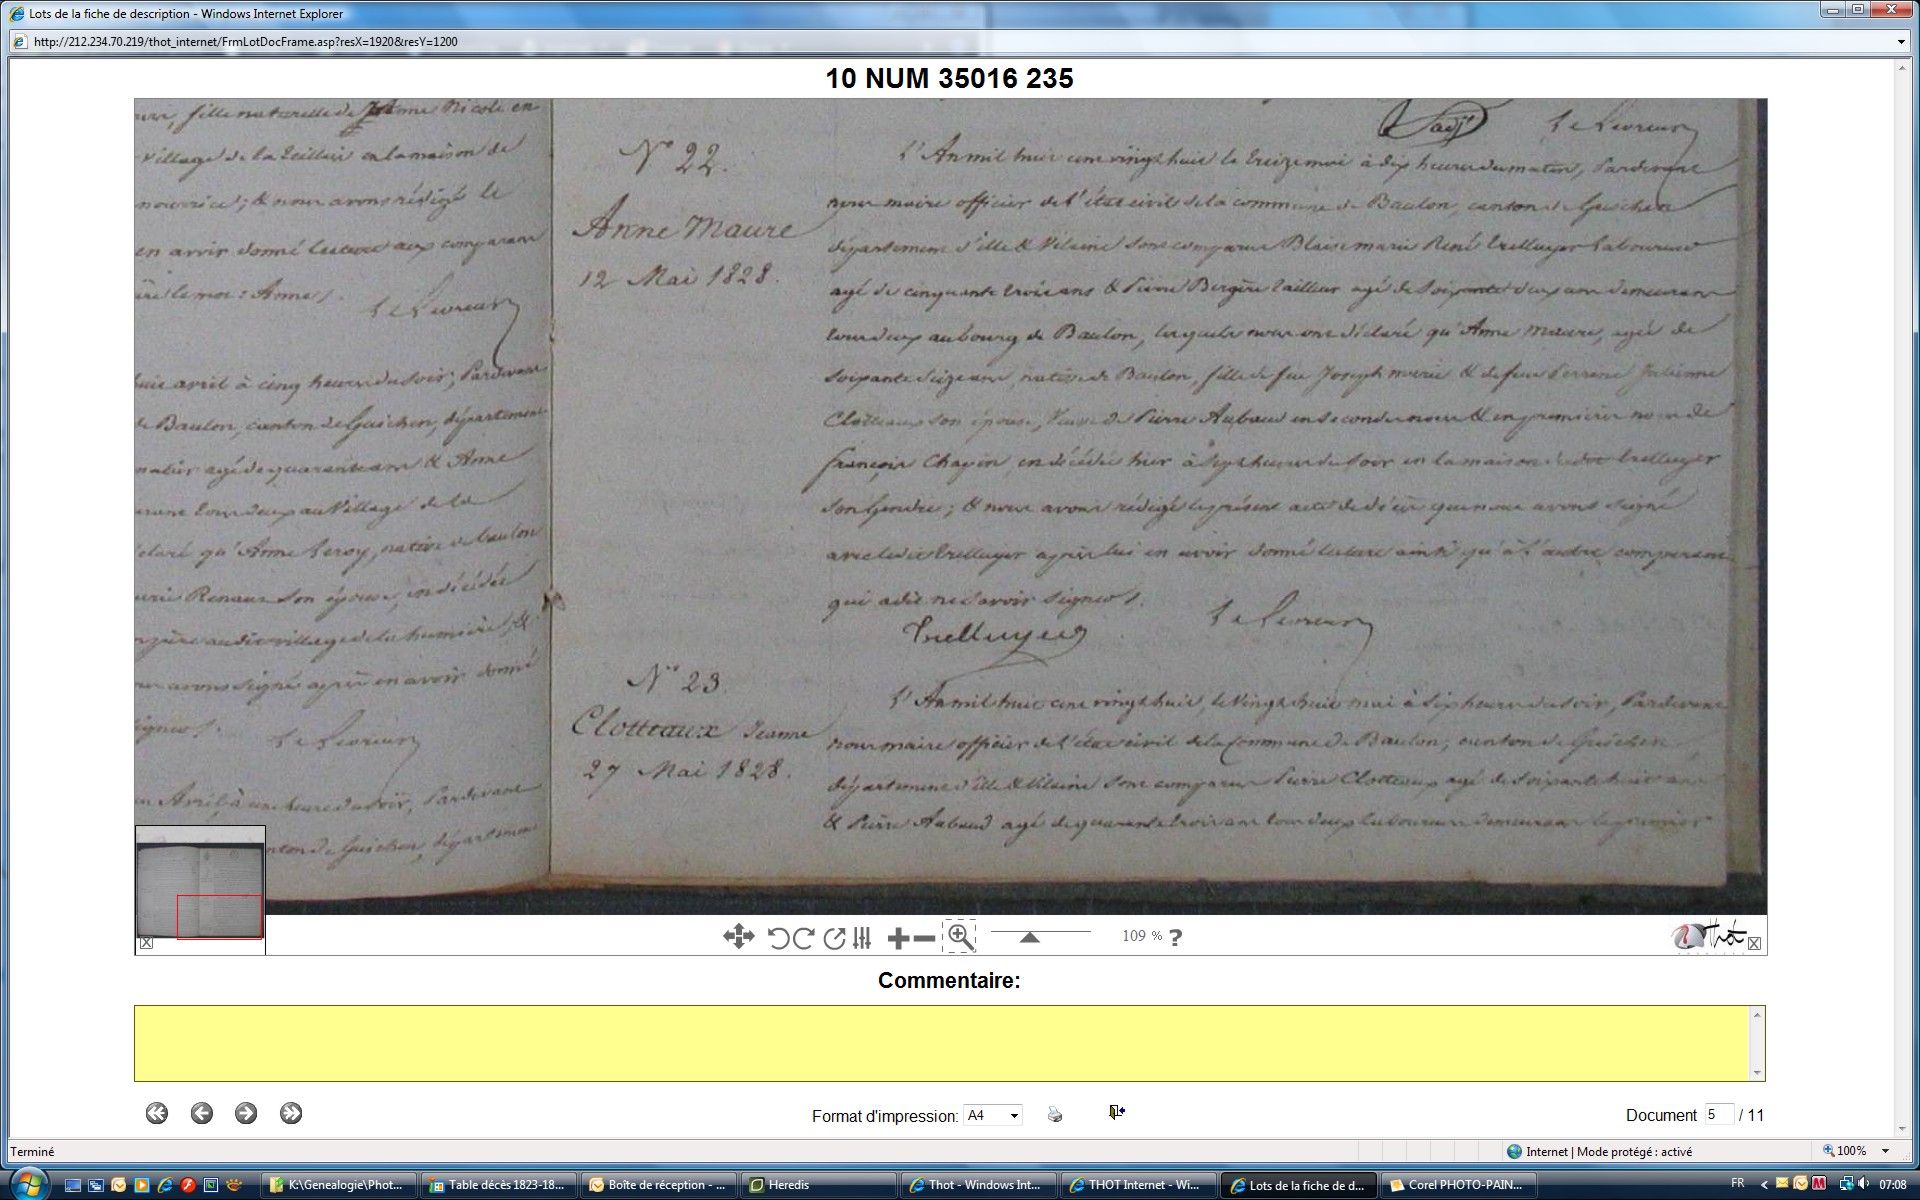 Lots de la fiche de description - Windows Internet Explorer
http://212.234.70.219/thot_internet/FrmLotDocFrame.asp?resX=1920&resY=1200
10 NUM 35016 235
fille naturelle de Anne Nicole en
village de la en la maison de
nourrice; & nous avons rédigé le
en avoir donné lecture aux comparans
le mot: Anne.
Le Livreur
avril à cinq heures du soir, Pardevant
de Baulon, canton de Guichen, département
agé de quarante ans & Anne
tous deux au Village de la
déclaré qu'Anne Leroy, native de Baulon
Renaux son épouse, est décédée
audit village de la humière; &
avons signé après en avoir donné
signer.
Le Livreur
Avril, à une heure du soir, Pardevant
canton de Guichen, département
N° 22.
Anne Maure
12 Mai 1828.
Le Livreur
L'An mil huit cent vingt huit le treize mai à dix heures du matin, Pardevant
nous maire officier de l'état civil de la commune de Baulon, canton de Guichen
département d'ille & Vilaine sont comparus Blaise marie René Trelluyer Laboureur
agé de cinquante trois ans & Pierre Bergère tailleur agé de soixante deux ans demeurans
tous deux au bourg de Baulon, lesquels nous ont déclaré qu'Anne Maure, agée de
soixante seize ans, native de Baulon, fille de feu Joseph maure & de feue Perrine Julienne
Clotteaux son épouse, Veuve de Pierre Aubaud en secondes noces & en premières noces de
françois Chapin, est décédée hier à sept heures du soir en la maison dudit Trelluyer
son Gendre; & nous avons rédigé le présent acte de décès que nous avons signé
avec ledit Trelluyer après lui en avoir donné lecture ainsi qu'à l'autre comparant
qui a dit ne savoir signer.
Trelluyer
Le Livreur
N° 23.
Clotteaux Jeanne
27 Mai 1828.
L'An mil huit cent vingt huit, le vingt huit mai à six heures du soir, Pardevant
nous maire officier de l'état civil de la Commune de Baulon, canton de Guichen
département d'ille & Vilaine sont comparus Pierre Clotteaux agé de soixante huit ans
& Pierre Aubaud agé de quarante trois ans tous deux laboureurs demeurans le premier
109 % ?
Thot
Commentaire:
Format d'impression: A4
Document 5 / 11
Terminé
Internet | Mode protégé : activé
100%
K:\Genealogie\Phot...
Table décès 1823-18...
Boîte de réception - ...
Heredis
Thot - Windows Int...
THOT Internet - Wi...
Lots de la fiche de d...
Corel PHOTO-PAIN...
FR
07:08